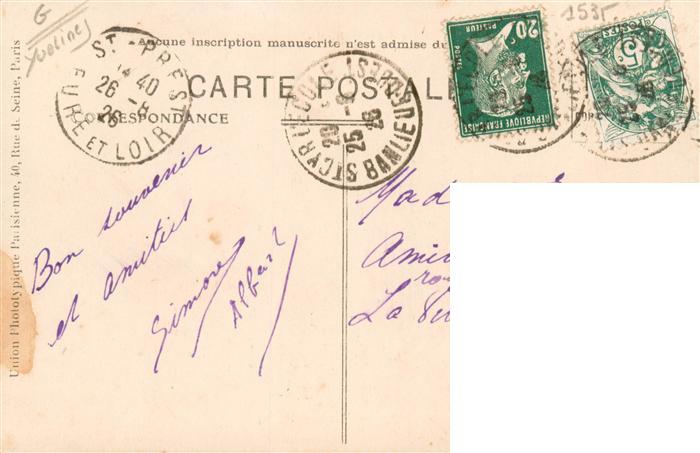 G
Yvelines
1535
Aucune inscription manuscrite n'est admise du
CARTE POSTALE
CORRESPONDANCE
ST-PREST
14 40
26 -8
26
EURE ET LOIR
ST CYR L'ECOLE
25 -8
26
20c
POSTES
PASTEUR
REPUBLIQUE FRANÇAISE
5c
POSTES
Bon souvenir
et amitiés
Simone
Albert
Mad
La
Union Phototypique Parisienne, 40, Rue de Seine, Paris